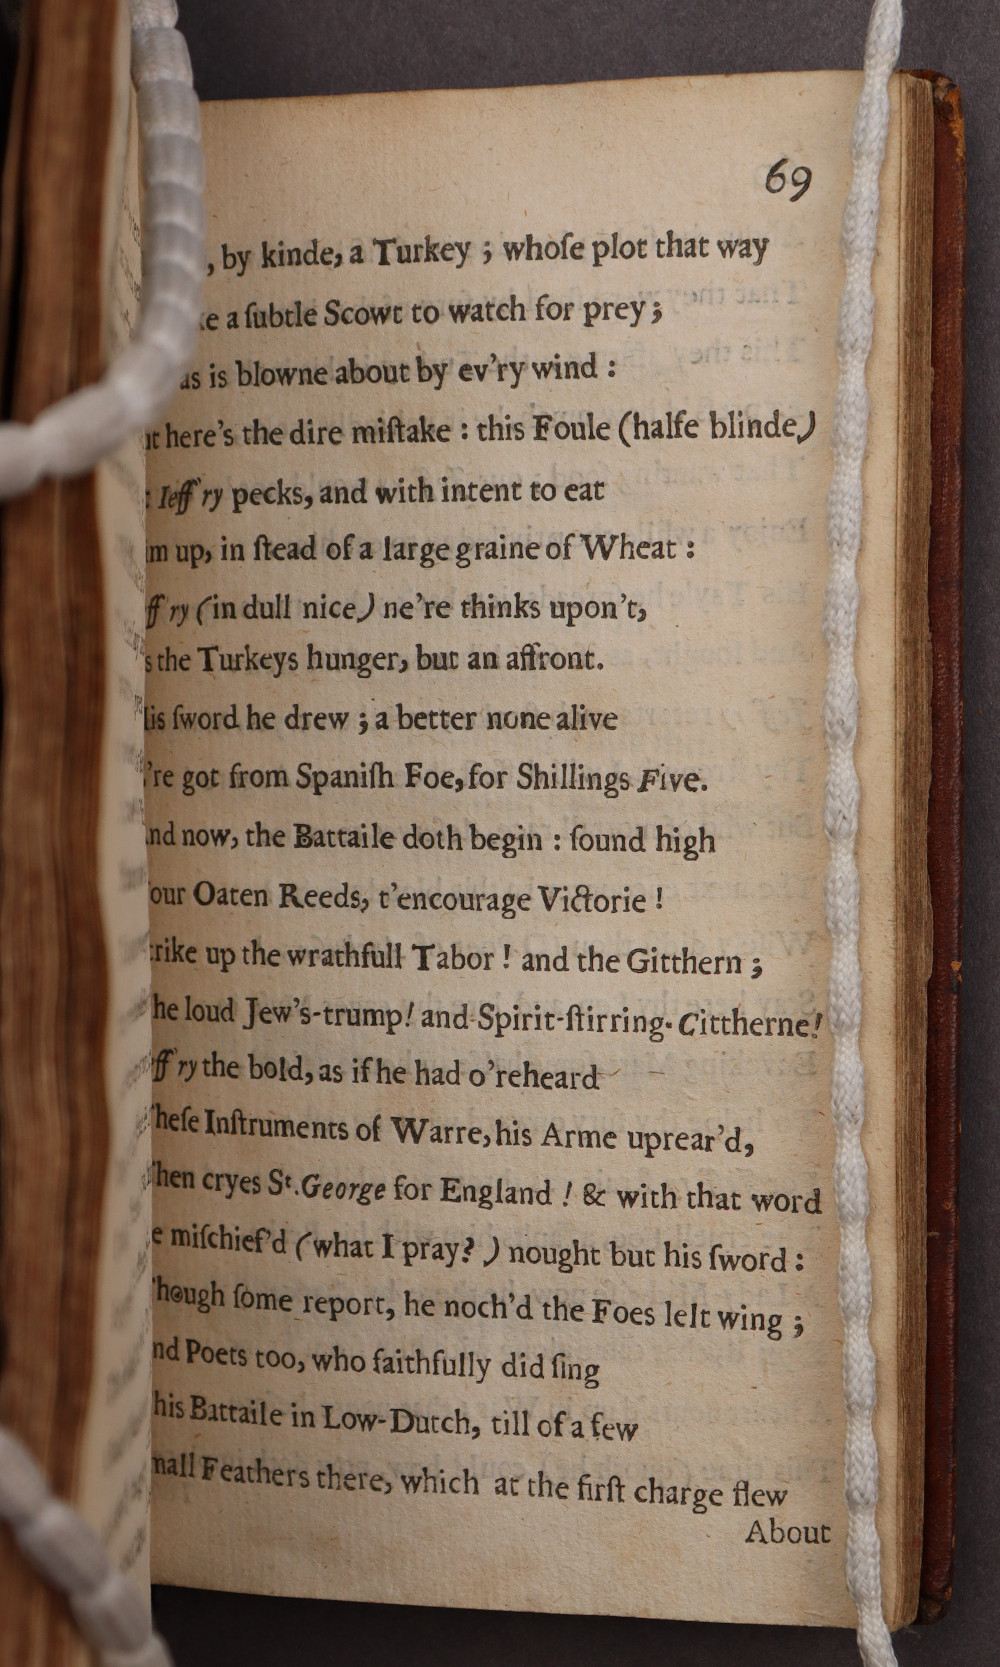 69
, by kinde, a Turkey ; whoſe plot that way
a ſubtle Scowt to watch for prey ;
is blowne about by ev'ry wind :
here's the dire miſtake : this Foule (halfe blinde)
Ieff'ry pecks, and with intent to eat
up, in ſtead of a large graine of Wheat :
ff'ry (in dull nice) ne're thinks upon't,
the Turkeys hunger, but an affront.
is ſword he drew ; a better none alive
're got from Spaniſh Foe, for Shillings Five.
nd now, the Battaile doth begin : ſound high
our Oaten Reeds, t'encourage Victorie !
rike up the wrathfull Tabor ! and the Gitthern ;
he loud Jew's-trump! and Spirit-ſtirring Cittherne!
ff'ry the bold, as if he had o'reheard
heſe Inſtruments of Warre, his Arme uprear'd,
hen cryes St. George for England ! & with that word
e miſchief'd (what I pray? ) nought but his ſword :
hough ſome report, he noch'd the Foes left wing ;
nd Poets too, who faithfully did ſing
his Battaile in Low-Dutch, till of a few
mall Feathers there, which at the firſt charge flew
About